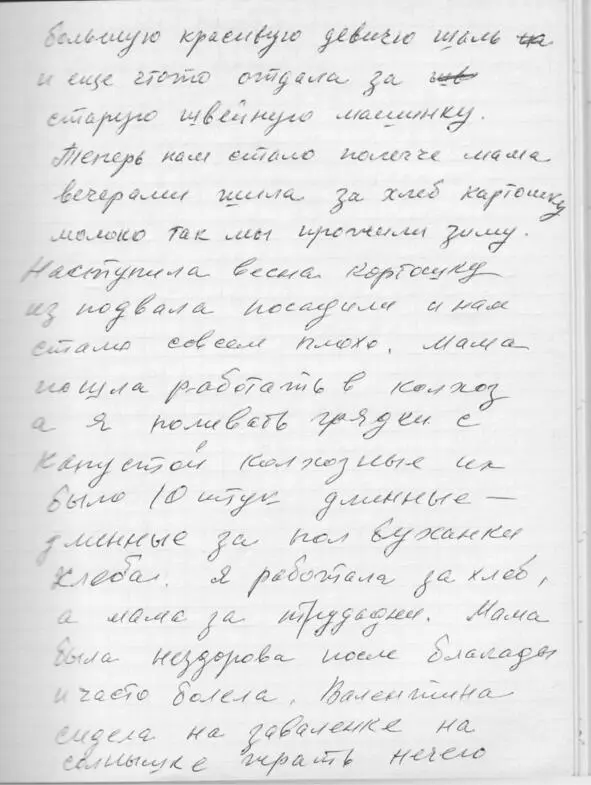 большую красивую девичю шаль на
и еще чтото отдала за шв
старую швейную машинку.
Теперь нам стало полегче мама
вечерами шила за хлеб картошку
молоко так мы прожили зиму.
Наступила весна картошку
из подвала посадили и нам
стало совсем плохо. Мама
пошла работать в колхоз
а я поливать грядки с
капустой колхозные их
было 10 штук длинные —
длинные за пол буханки
хлеба. Я работала за хлеб,
а мама за трудадни. Мама
была нездорова после блакады
и часто болела. Валентина
сидела на заваленке на
солнышке играть нечего